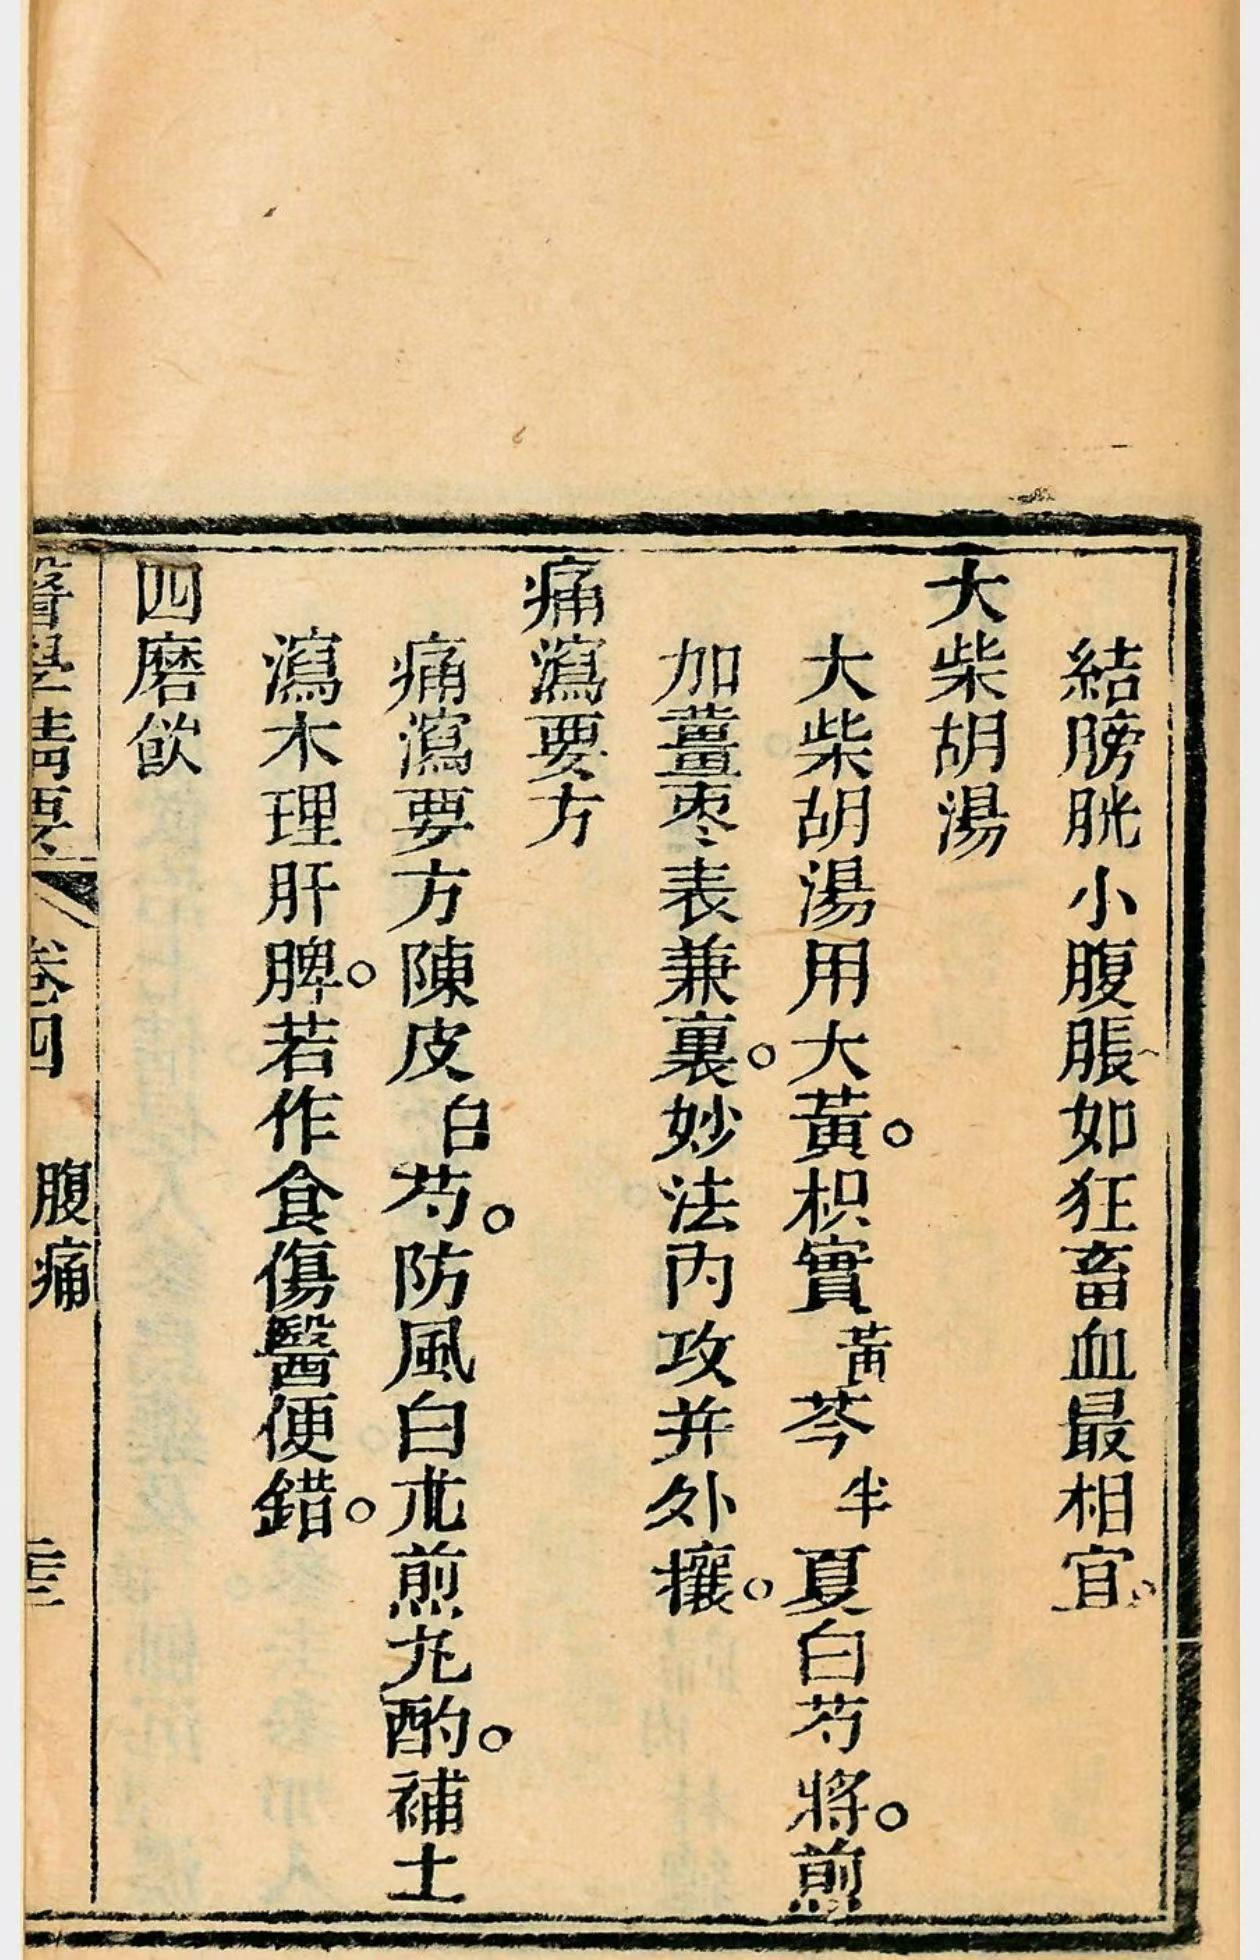 結膀胱小腹脹如狂畜血最相宜。
大柴胡湯
大柴胡湯用大黃。枳實黃芩半夏白芍將。煎
加薑枣表兼裏。妙法內攻并外攘。
痛瀉要方
痛瀉要方陳皮白芍。防風白朮煎丸酌。補土
瀉木理肝脾。若作食傷醫便錯。
四磨飲
醫學精要 卷四 腹痛